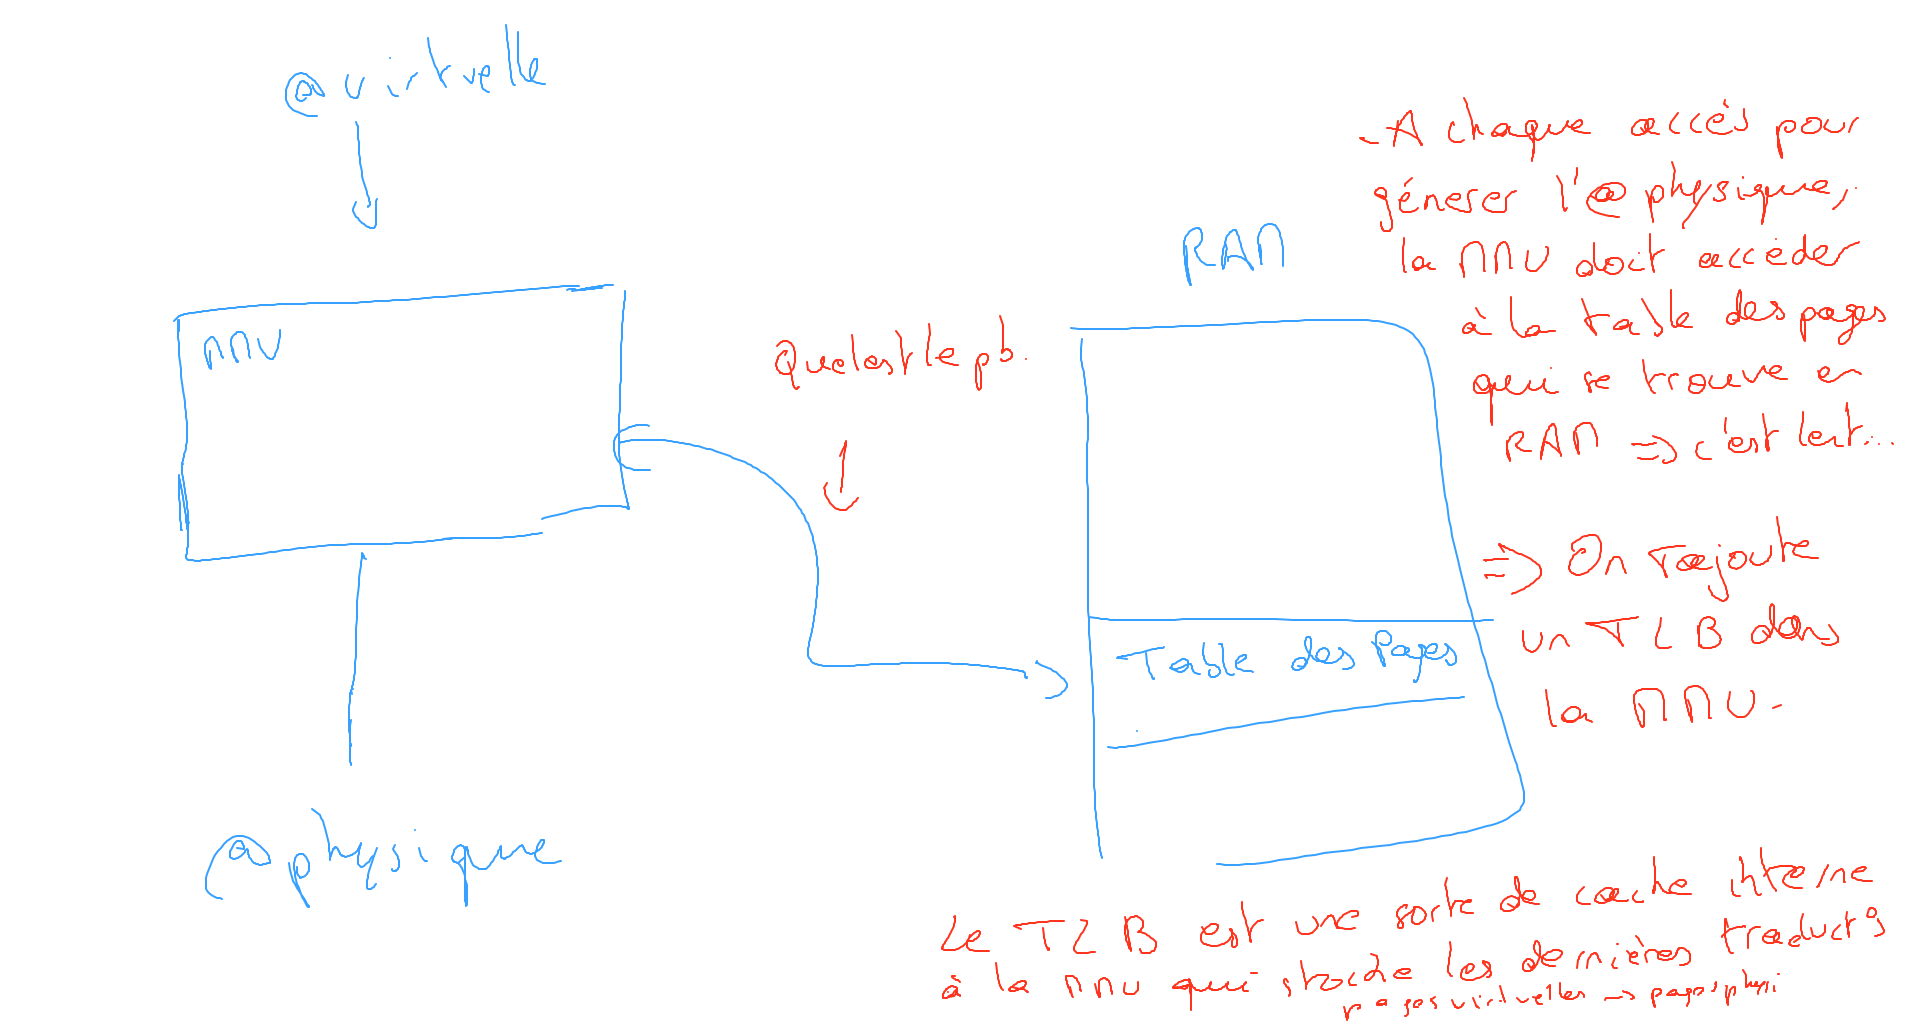 @virtuelle
MMU
@physique
Quel est le pb.
RAM
Table des Pages
- A chaque accés pour
génerer l'@physique,
la MMU doit accéder
à la table des pages
qui se trouve en
RAM => c'est lent...
=> On rajoute
un TLB dans
la MMU.
Le TLB est une sorte de cache interne
à la MMU qui stocke les dernières traduct°s
pages virtuelles -> pages physi